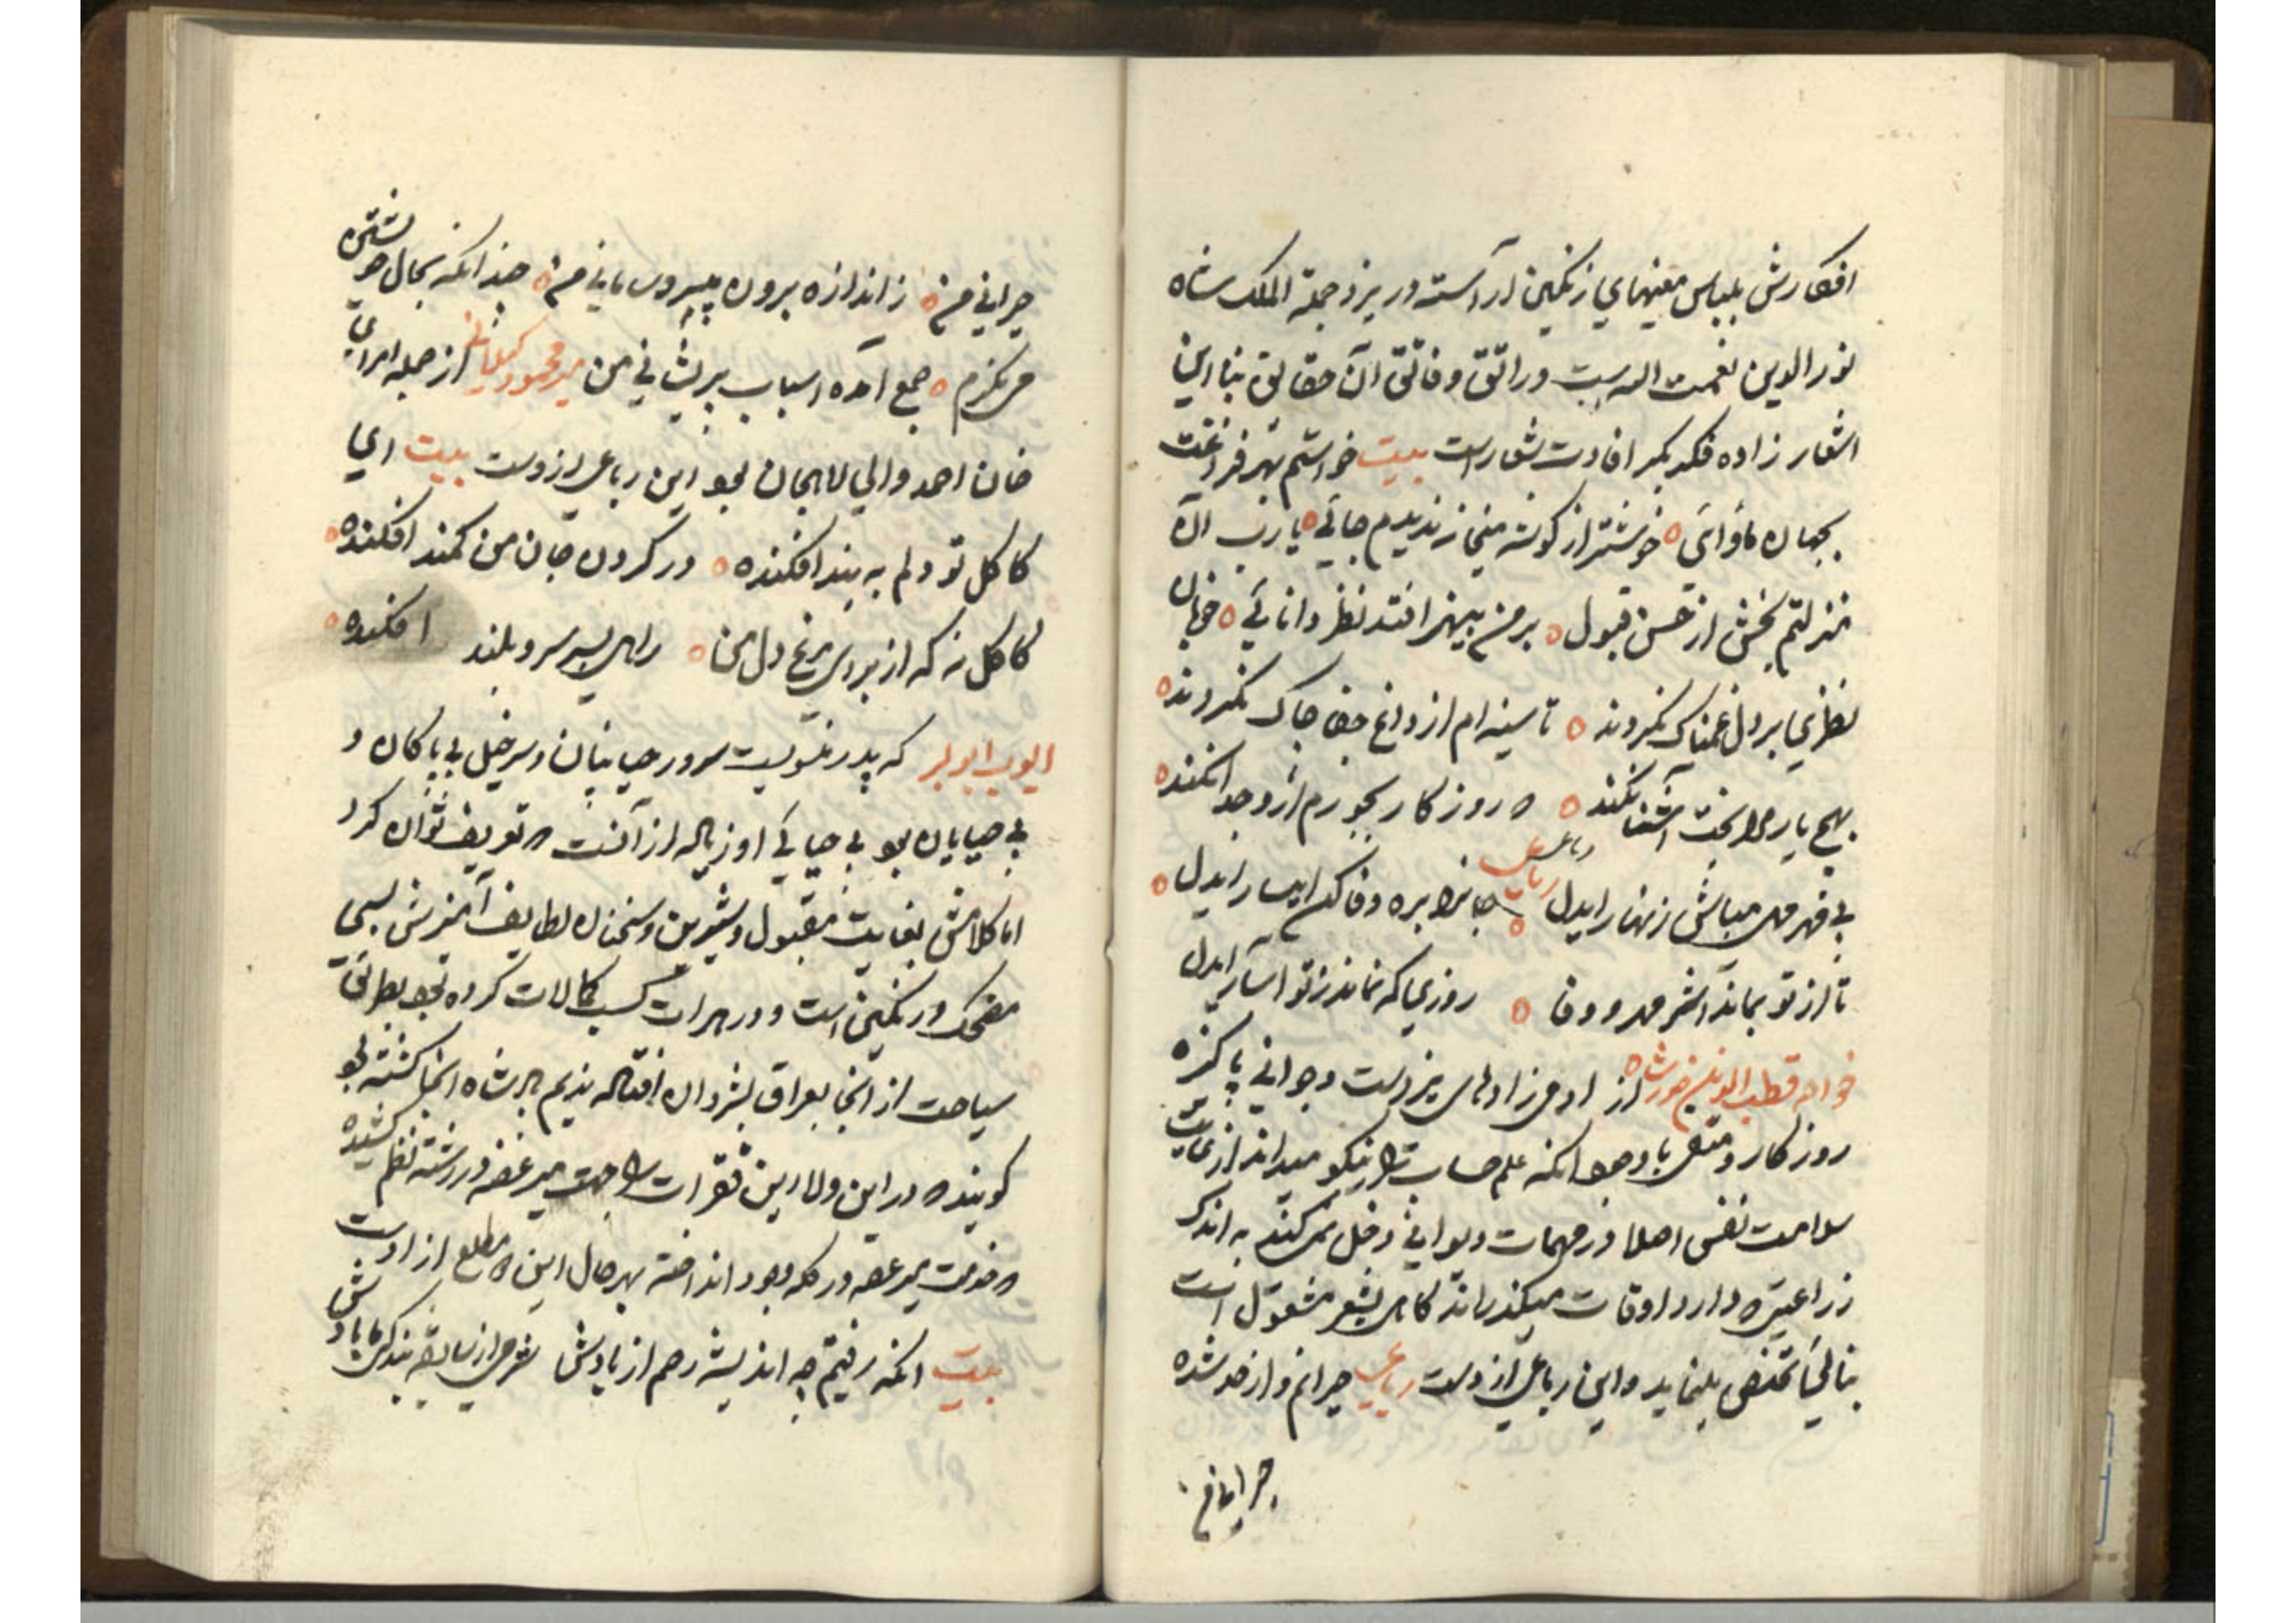 افکارش بلباس معنیهای رنکین آراسته در یزد جملة الملک شاه
نورالدین نعمت الله است و راتق و فاتق آن حقایق بنا این
اشعار زاده فکر بکر افادت شعار است بیت خواستم بهر فراغت
بجهان ماوائی خوشتر از کوشه میخانه ندیدم جائی یا رب آن
منزلتم بخش از حسن قبول بر من بیهنر افتد نظر دانائی خوبان
نظری بر دل غمناک نکردند تا سینه ام از داغ جفا چاک نکردند
بهیچ یار مرا بخت آشنا نکند که روزکار بجورم ازو جدا نکند
بی مهر مباش زینهار ایدل رباعی رباعی جانرا بره وفا کن ایثار ایدل
تا از تو بماند اثر مهر و وفا روزی که نماند ز تو آثار ایدل
خواجه قطب الدین خورشاه از آدمی زادهای یزدست و جوانی پاکیزه
روزکار و متقی با وجود آنکه علم حساب را نیکو میداند از غایت
سلامت نفس اصلا در مهمات دیوانی دخل نمی کند به اندک
زراعتی که دارد اوقات میکذراند کاهی بشعر مشغول است
تخلص مینماید و این رباعی ازوست رباعی حیرانم و از حد شده
حیرانی
حیرانی من ز اندازه برون بی سر و سامانی من چندانکه بحال خویشتن
می نکرم جمع آمده اسباب پریشانی من میر محمود کیلانی از جمله امرای
خان احمد والی لاهیجان بود این رباعی ازوست بیت ای
کاکل تو دلم به بند افکنده در کردن جان من کمند افکنده
کاکل نه که از برای مرغ دل من دامی بسر سرو بلند افکنده
ایوب ابوالبر که پدر سرور حیانیان و سرخیل بی باکان و
بی حیایان بود بی حیائی او زیاده از آنست که تعریف توان کرد
اما کلامش بغایت مقبول و شیرین و سخنان لطایف آمیزش بسی
مضحک و رنکین است و در هرات کسب کمالات کرده بود بطریق
سیاحت از آنجا بعراق بشروان افتاده ندیم شاه آنجا کشته بود
کویند که در این ولا این فقرات را جهت میر عضد در رشته نظم کشیده
که خدمت میر عضد در کله وجود انداخته بهر حال این مطلع از اوست
بیت آنکه رفتیم چه اندیشه رحم از یادش شرمی از سابقه بندکی ما بادش